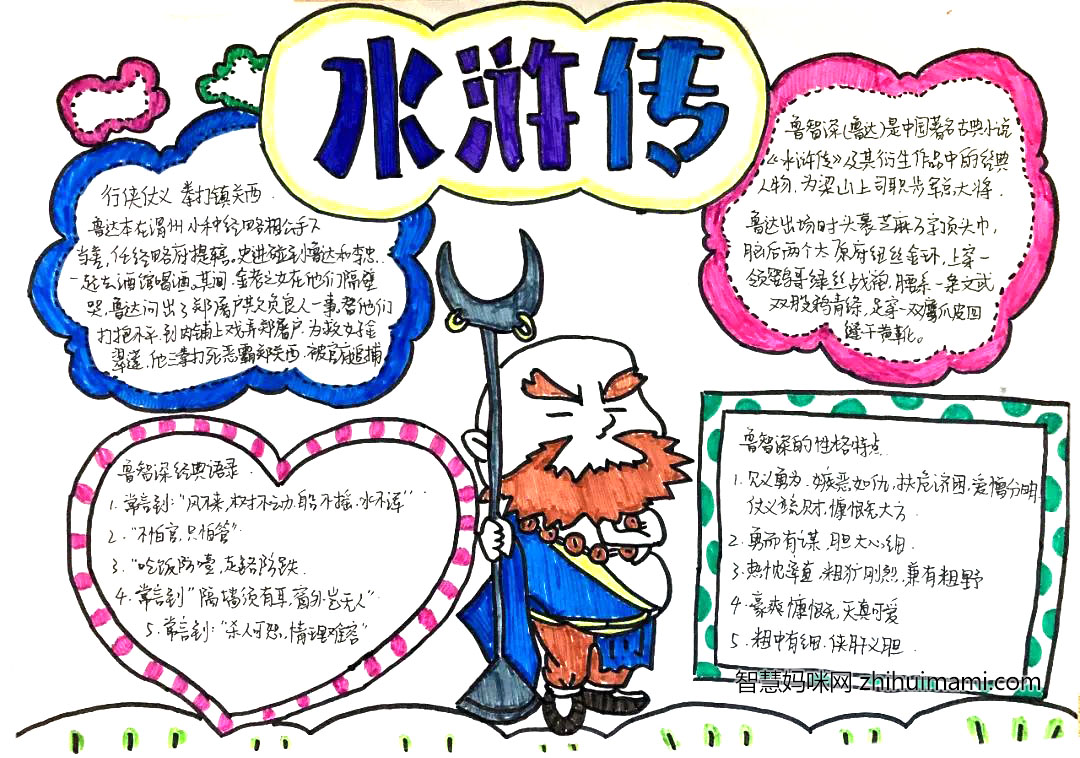 水浒传
行侠仗义 拳打镇关西.
鲁达本在渭州小种经略相公手下
当差,任经略府提辖。史进碰到鲁达和李忠
一起去酒馆喝酒。其间,金老父女在他们隔壁
哭,鲁达问出了郑屠户欺负良人一事,替他们
打抱不平,到肉铺上戏弄郑屠户,为救女子金
翠莲,他三拳打死恶霸郑关西,被官府追捕
鲁智深(鲁达)是中国著名古典小说
《水浒传》及其衍生作品中的经典
人物,为梁山上司职步军大将.
鲁达出场时头裹芝麻万字顶头巾,
脑后两个太原府纽丝金环,上穿一
领鹦哥绿丝战袍,腰系一条文武
双股鸦青绦,足穿一双鹰爪皮四
缝干黄靴。
鲁智深经典语录.
1. 常言到:"风不来,树不动,船不摇,水不浑"
2. "不怕官,只怕管"
3. "吃饭防噎,走路防跌.
4. 常言到"隔墙须有耳,窗外岂无人"
5. 常言到:"杀人可恕,情理难容"
鲁智深的性格特点
1. 见义勇为.嫉恶如仇,扶危济困,爱憎分明
仗义疏财,慷慨大方.
2. 勇而有谋,胆大心细.
3. 热忱率直,粗犷刚烈,兼有粗野
4. 豪爽慷慨,天真可爱
5. 粗中有细.侠肝义胆.
智慧妈咪网 zhihuimami.com